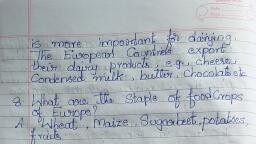 is more important for dairying.
The European Countries export
their dairy products e.g., cheese,
Condensed milk, butter, Chocolate etc
8. What are the Staple of food Crops
of Europe?
A. Wheat, Maize, Sugarbeet, potatoes,
fruits